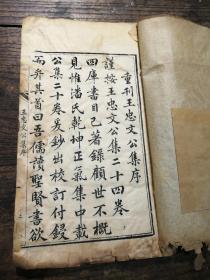 重刊王忠文公集序
謹按王忠文公集二十四卷
四庫書目已著錄顧世不概
見惟潘氏乾坤正氣集中載
公集二十卷爰鈔出校訂付鋟
而弁其首曰吾儒讀聖賢書欲
王忠文公集序